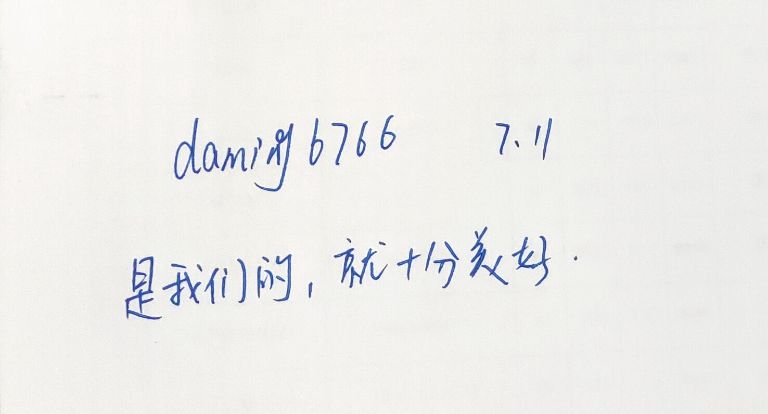 daming6766 7.11
是我们的,就十分美好.